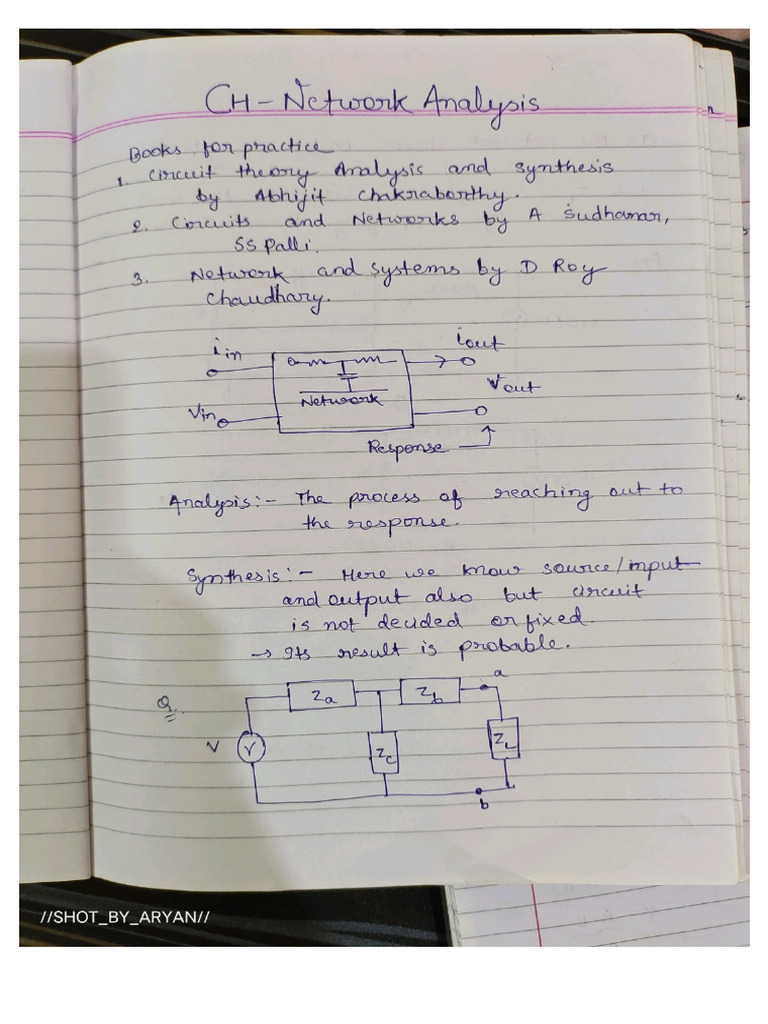 CH - Network Analysis
Books for practice
1. Circuit theory Analysis and synthesis
by Abhijit Chakraborthy.
2. Circuits and Networks by A Sudhanar,
SS Palli.
3. Network and systems by D Roy
Chaudhary.
iin
iout
Vout
Network
Vin
Response
Analysis:- The process of reaching out to
the response.
Synthesis:- Here we know source/input
and output also but circuit
is not decided or fixed.
→ Its result is probable.
a
Q. Za Zb
V V Zc ZL
b
//SHOT_BY_ARYAN//